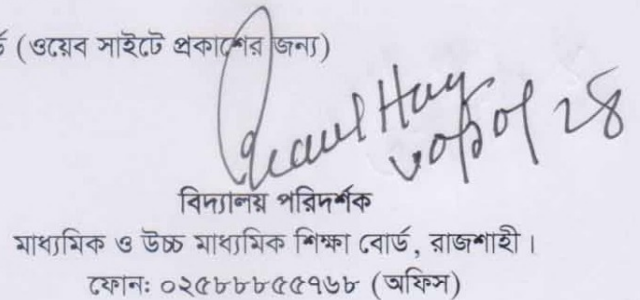 (ওয়েব সাইটে প্রকাশের জন্য)
বিদ্যালয় পরিদর্শক
মাধ্যমিক ও উচ্চ মাধ্যমিক শিক্ষা বোর্ড, রাজশাহী।
ফোনঃ ০২৫৮৮৮৫৫৭৬৮ (অফিস)